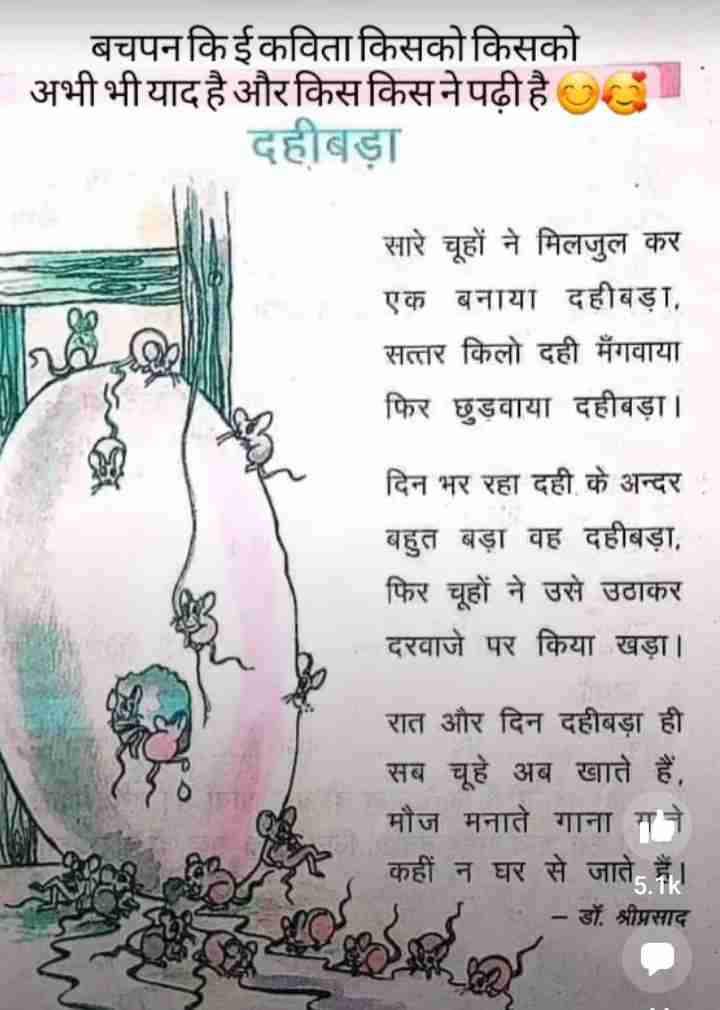 बचपन कि ई कविता किसको किसको
अभी भी याद है और किस किस ने पढ़ी है 😊🥰
दहीबड़ा
सारे चूहों ने मिलजुल कर
एक बनाया दहीबड़ा,
सत्तर किलो दही मँगवाया
फिर छुड़वाया दहीबड़ा।
दिन भर रहा दही के अन्दर
बहुत बड़ा वह दहीबड़ा,
फिर चूहों ने उसे उठाकर
दरवाजे पर किया खड़ा।
रात और दिन दहीबड़ा ही
सब चूहे अब खाते हैं,
मौज मनाते गाना
कहीं न घर से जाते हैं।
5.1k
– डॉ. श्रीप्रसाद